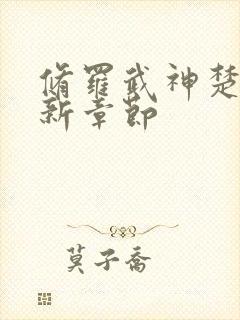 脩羅武神楚
新章節
莫子喬